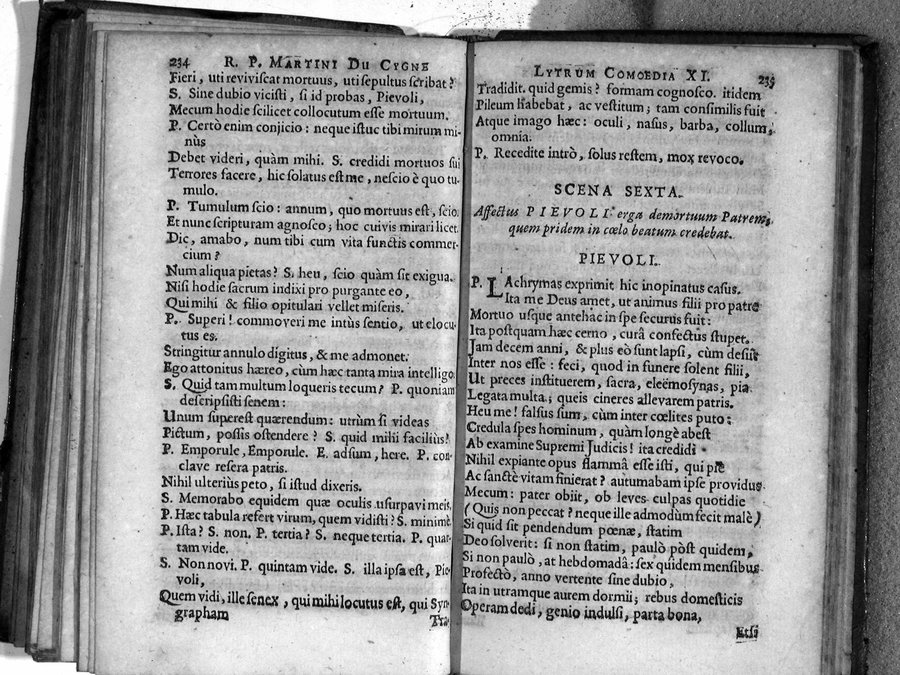 234 R. P. MARTINI DU CYGNE
Fieri, uti reviviscat mortuus, uti sepultus scribat?
S. Sine dubio vicisti, si id probas, Pievoli,
Mecum hodie scilicet collocutum esse mortuum.
P. Certò enim conjicio: neque istuc tibi mirum mi-
nùs
Debet videri, quàm mihi. S. credidi mortuos sui
Terrores facere, hic solatus est me, nescio è quo tu-
mulo.
P. Tumulum scio: annum, quo mortuus est, scio.
Et nunc scripturam agnosco; hoc cuivis mirari licet.
Dic, amabo, num tibi cum vita functis commer-
cium?
Num aliqua pietas? S. heu, scio quàm sit exigua.
Nisi hodie sacrum indixi pro purgante eo,
Qui mihi & filio opitulari vellet miseris.
P. Superi! commoveri me intùs sentio, ut elocu-
tus es.
Stringitur annulo digitus, & me admonet.
Ego attonitus hæreo, cùm hæc tanta mira intelligo.
S. Quid tam multum loqueris tecum? P. quoniam
descripsisti senem:
Unum superest quærendum: utrùm si videas
Pictum, possis ostendere? S. quid mihi faciliùs?
P. Emporule, Emporule. E. adsum, here. P. con-
clave resera patris.
Nihil ulteriùs peto, si istud dixeris.
S. Memorabo equidem quæ oculis usurpavi meis.
P. Hæc tabula refert virum, quem vidisti? S. minimè.
P. Ista? S. non. P. tertia? S. neque tertia. P. quar-
tam vide.
S. Non novi. P. quintam vide. S. illa ipsa est, Pie-
voli,
Quem vidi, ille senex, qui mihi locutus est, qui Syn-
grapham
Tra-
LYTRUM COMOEDIA XI. 235
Tradidit. quid gemis? formam cognosco. itidem
Pileum habebat, ac vestitum; tam consimilis fuit
Atque imago hæc: oculi, nasus, barba, collum,
omnia.
P. Recedite intrò, solus restem, mox revoco.
SCENA SEXTA.
Affectus PIEVOLI erga demortuum Patrem,
quem pridem in cœlo beatum credebat.
PIEVOLI.
P. LAchrymas exprimit hic inopinatus casus.
Ita me Deus amet, ut animus filii pro patre
Mortuo usque antehac in spe securus fuit:
Ita postquam hæc cerno, curâ confectus stupet.
Jam decem anni, & plus eò sunt lapsi, cùm desiit
Inter nos esse: feci, quod in funere solent filii,
Ut preces instituerem, sacra, eleëmosynas, pia
Legata multa; queis cineres allevarem patris.
Heu me! falsus sum, cùm inter cœlites puto:
Credula spes hominum, quàm longè abest
Ab examine Supremi Judicis! ita credidi
Nihil expiante opus flammâ esse isti, qui piè
Ac sanctè vitam finierat? autumabam ipse providus
Mecum: pater obiit, ob leves culpas quotidie
(Quis non peccat? neque ille admodùm fecit malè)
Si quid sit pendendum pœnæ, statim
Deo solverit: si non statim, paulò pòst quidem,
Si non paulò, at hebdomadâ: sex quidem mensibus
Profectò, anno vertente sine dubio,
Ita in utramque aurem dormii; rebus domesticis
Operam dedi, genio indulsi, parta bona,
Etsi